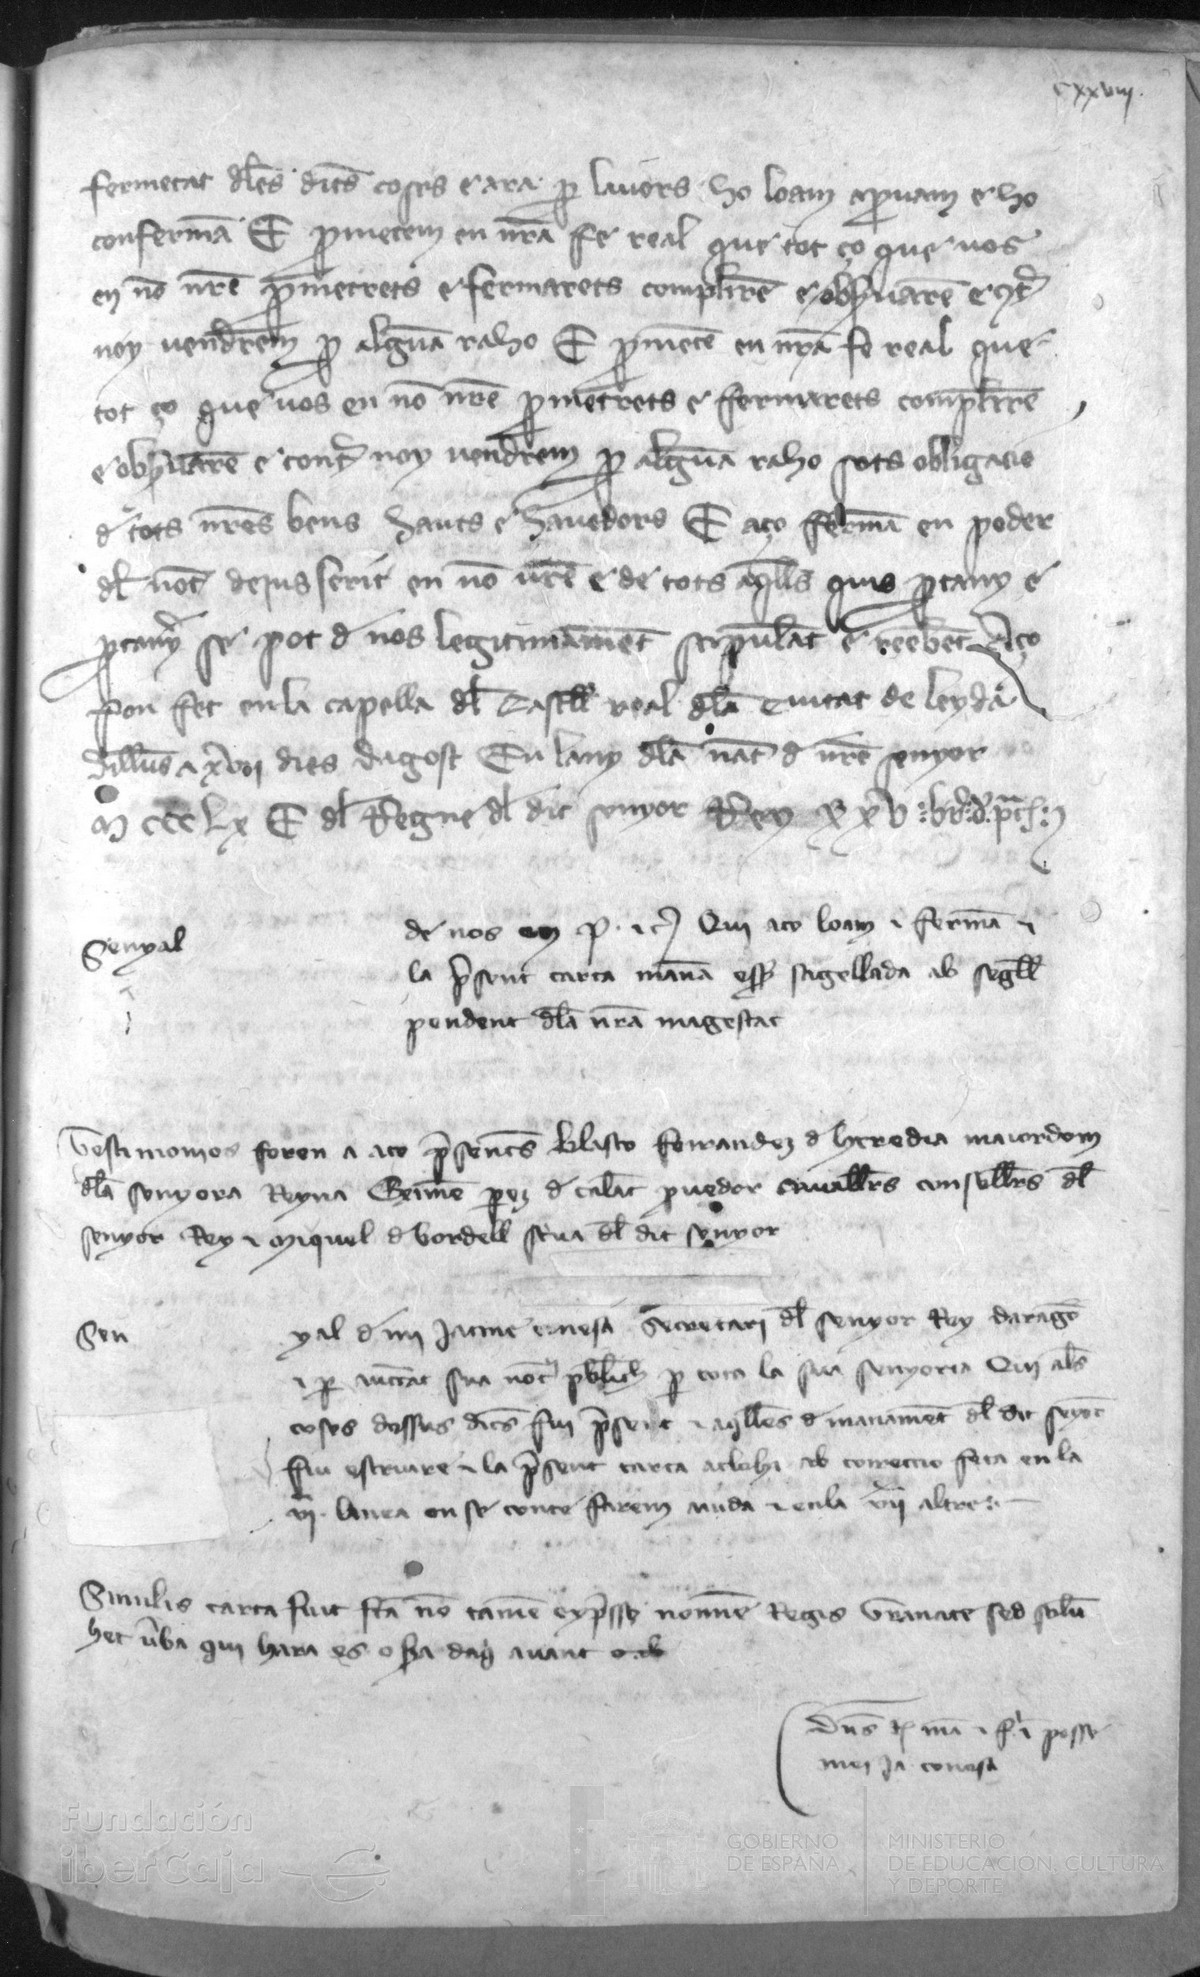 cxxviij.
fermetat dles dites coses e ara per lavors ho loam apvam e ho
conferma E pmetem en nra fe real que tot ço que vos
en no nre pmetrets e fermarets complire e obsvare e cont
noy vendrem p alguna raho E pmete en nra fe real que
tot ço que vos en no nre pmetrets e fermarets complire
e obsvare e cont noy vendrem p alguna raho sots obligacio
d tots nres bens hauts e havedors E aço ferma en poder
dl not dejus scrit en no vre e de tots aqlls quis ptany e
ptany se pot d nos legitimament stipulat e reebet Aço
fon fet en la capella dl Castell real dla Ciutat de Leyda
dilluns a xvii dies dagost En lany dla nat d nre senyor
M ccc Lx E dl Regne dl dit senyor Rey xxv
Senyal
de nos en P. Qui aço loam i ferma i
la psent carta mana esser sagellada ab segell
pendent dla nra magestat
Testimonios foren a aço psents Blasco Ferrandez d heredia maiordom
dla senyora Reyna Exime perez d calat pvedor cavallrs consellrs dl
senyor Rey i Miquel d bordell scriva dl dit senyor
Sen
yal d mi Jacme conesa Secretari dl senyor Rey darago
i p auctat sua not publich p tota la sua senyoria Qui ales
coses dessus dites fuy psent i aqlles d manament dl dit senyor
fiu escriure i la psent carta aclohi ab correccio feta en la
vi. linea on se conte farem auda i en la vii altre
Similis carta fuit fta no tame expsse nomine Regis Granate sed solu
hec vba qui hara es o sera daq avant
Dns Rex posse
mei Ja. conesa
Fundación
iberCaja
GOBIERNO
DE ESPAÑA
MINISTERIO
DE EDUCACIÓN, CULTURA
Y DEPORTE